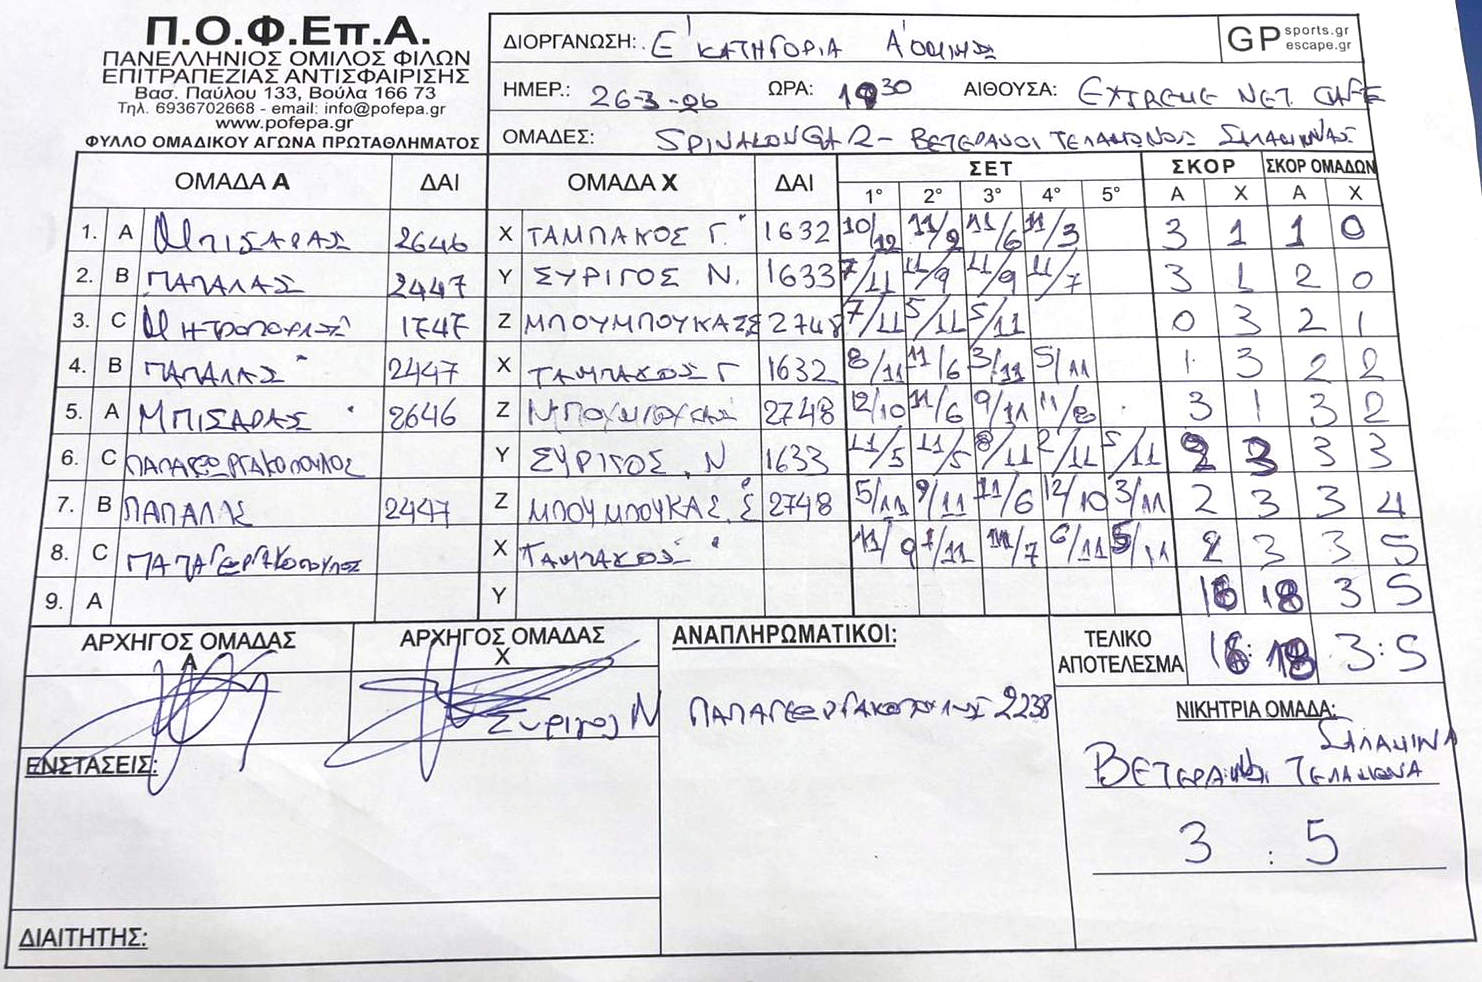 Π.Ο.Φ.Επ.Α.
ΠΑΝΕΛΛΗΝΙΟΣ ΟΜΙΛΟΣ ΦΙΛΩΝ
ΕΠΙΤΡΑΠΕΖΙΑΣ ΑΝΤΙΣΦΑΙΡΙΣΗΣ
Βασ. Παύλου 133, Βούλα 166 73
Τηλ. 6936702668 - email: info@pofepa.gr
www.pofepa.gr
ΦΥΛΛΟ ΟΜΑΔΙΚΟΥ ΑΓΩΝΑ ΠΡΩΤΑΘΛΗΜΑΤΟΣ
ΔΙΟΡΓΑΝΩΣΗ: Ε' ΚΑΤΗΓΟΡΙΑ Α'
GP sports.gr
escape.gr
ΗΜΕΡ.: 26-3-26 ΩΡΑ: 30 ΑΙΘΟΥΣΑ: EXTREME NET CAFE
ΟΜΑΔΕΣ: SPINALONGA 2 - ΒΕΤΕΡΑΝΟΙ ΤΕΛΑΜΩΝΟΣ ΣΑΛΑΜΙΝΑΣ
ΟΜΑΔΑ Α ΔΑΙ ΟΜΑΔΑ Χ ΔΑΙ ΣΕΤ ΣΚΟΡ ΣΚΟΡ ΟΜΑΔΩΝ
1° 2° 3° 4° 5° Α Χ Α Χ
1. Α ΜΠΙΣΑΡΑΣ 2646 Χ ΤΑΜΠΑΚΟΣ Γ. 1632 10/12 11/2 11/6 11/3 3 1 1 0
2. Β ΠΑΠΑΛΑΣ 2447 Υ ΣΥΡΙΓΟΣ Ν. 1633 7/11 11/9 11/9 11/7 3 1 2 0
3. C 1747 Ζ ΜΠΟΥΜΠΟΥΚΑΣ Σ 2748 7/11 5/11 5/11 0 3 2 1
4. Β ΠΑΠΑΛΑΣ 2447 Χ ΤΑΜΠΑΚΟΣ Γ 1632 8/11 11/6 3/11 5/11 1 3 2 2
5. Α ΜΠΙΣΑΡΑΣ 2646 Ζ ΜΠΟΥΜΠΟΥΚΑΣ 2748 12/10 11/6 9/11 11/8 3 1 3 2
6. C ΠΑΠΑΓΕΩΡΓΑΚΟΠΟΥΛΟΣ Υ ΣΥΡΙΓΟΣ. Ν 1633 11/5 11/5 8/11 2/11 5/11 2 3 3 3
7. Β ΠΑΠΑΛΑΣ 2447 Ζ ΜΠΟΥΜΠΟΥΚΑΣ. Σ 2748 5/11 9/11 11/6 12/10 3/11 2 3 3 4
8. C ΠΑΠΑΓΕΩΡΓΑΚΟΠΟΥΛΟΣ Χ ΤΑΜΠΑΚΟΣ 11/9 7/11 11/7 6/11 5/11 2 3 3 5
9. Α Υ 16 18 3 5
ΑΡΧΗΓΟΣ ΟΜΑΔΑΣ Α
ΑΡΧΗΓΟΣ ΟΜΑΔΑΣ Χ
Συριγος Ν
ΑΝΑΠΛΗΡΩΜΑΤΙΚΟΙ:
ΠΑΠΑΓΕΩΡΓΑΚΟΠΟΥΛΟΣ 2238
ΤΕΛΙΚΟ
ΑΠΟΤΕΛΕΣΜΑ 16:18 3:5
ΝΙΚΗΤΡΙΑ ΟΜΑΔΑ:
ΣΑΛΑΜΙΝΑ
ΒΕΤΕΡΑΝΟΙ ΤΕΛΑΜΩΝΑ
3 : 5
ΕΝΣΤΑΣΕΙΣ:
ΔΙΑΙΤΗΤΗΣ: